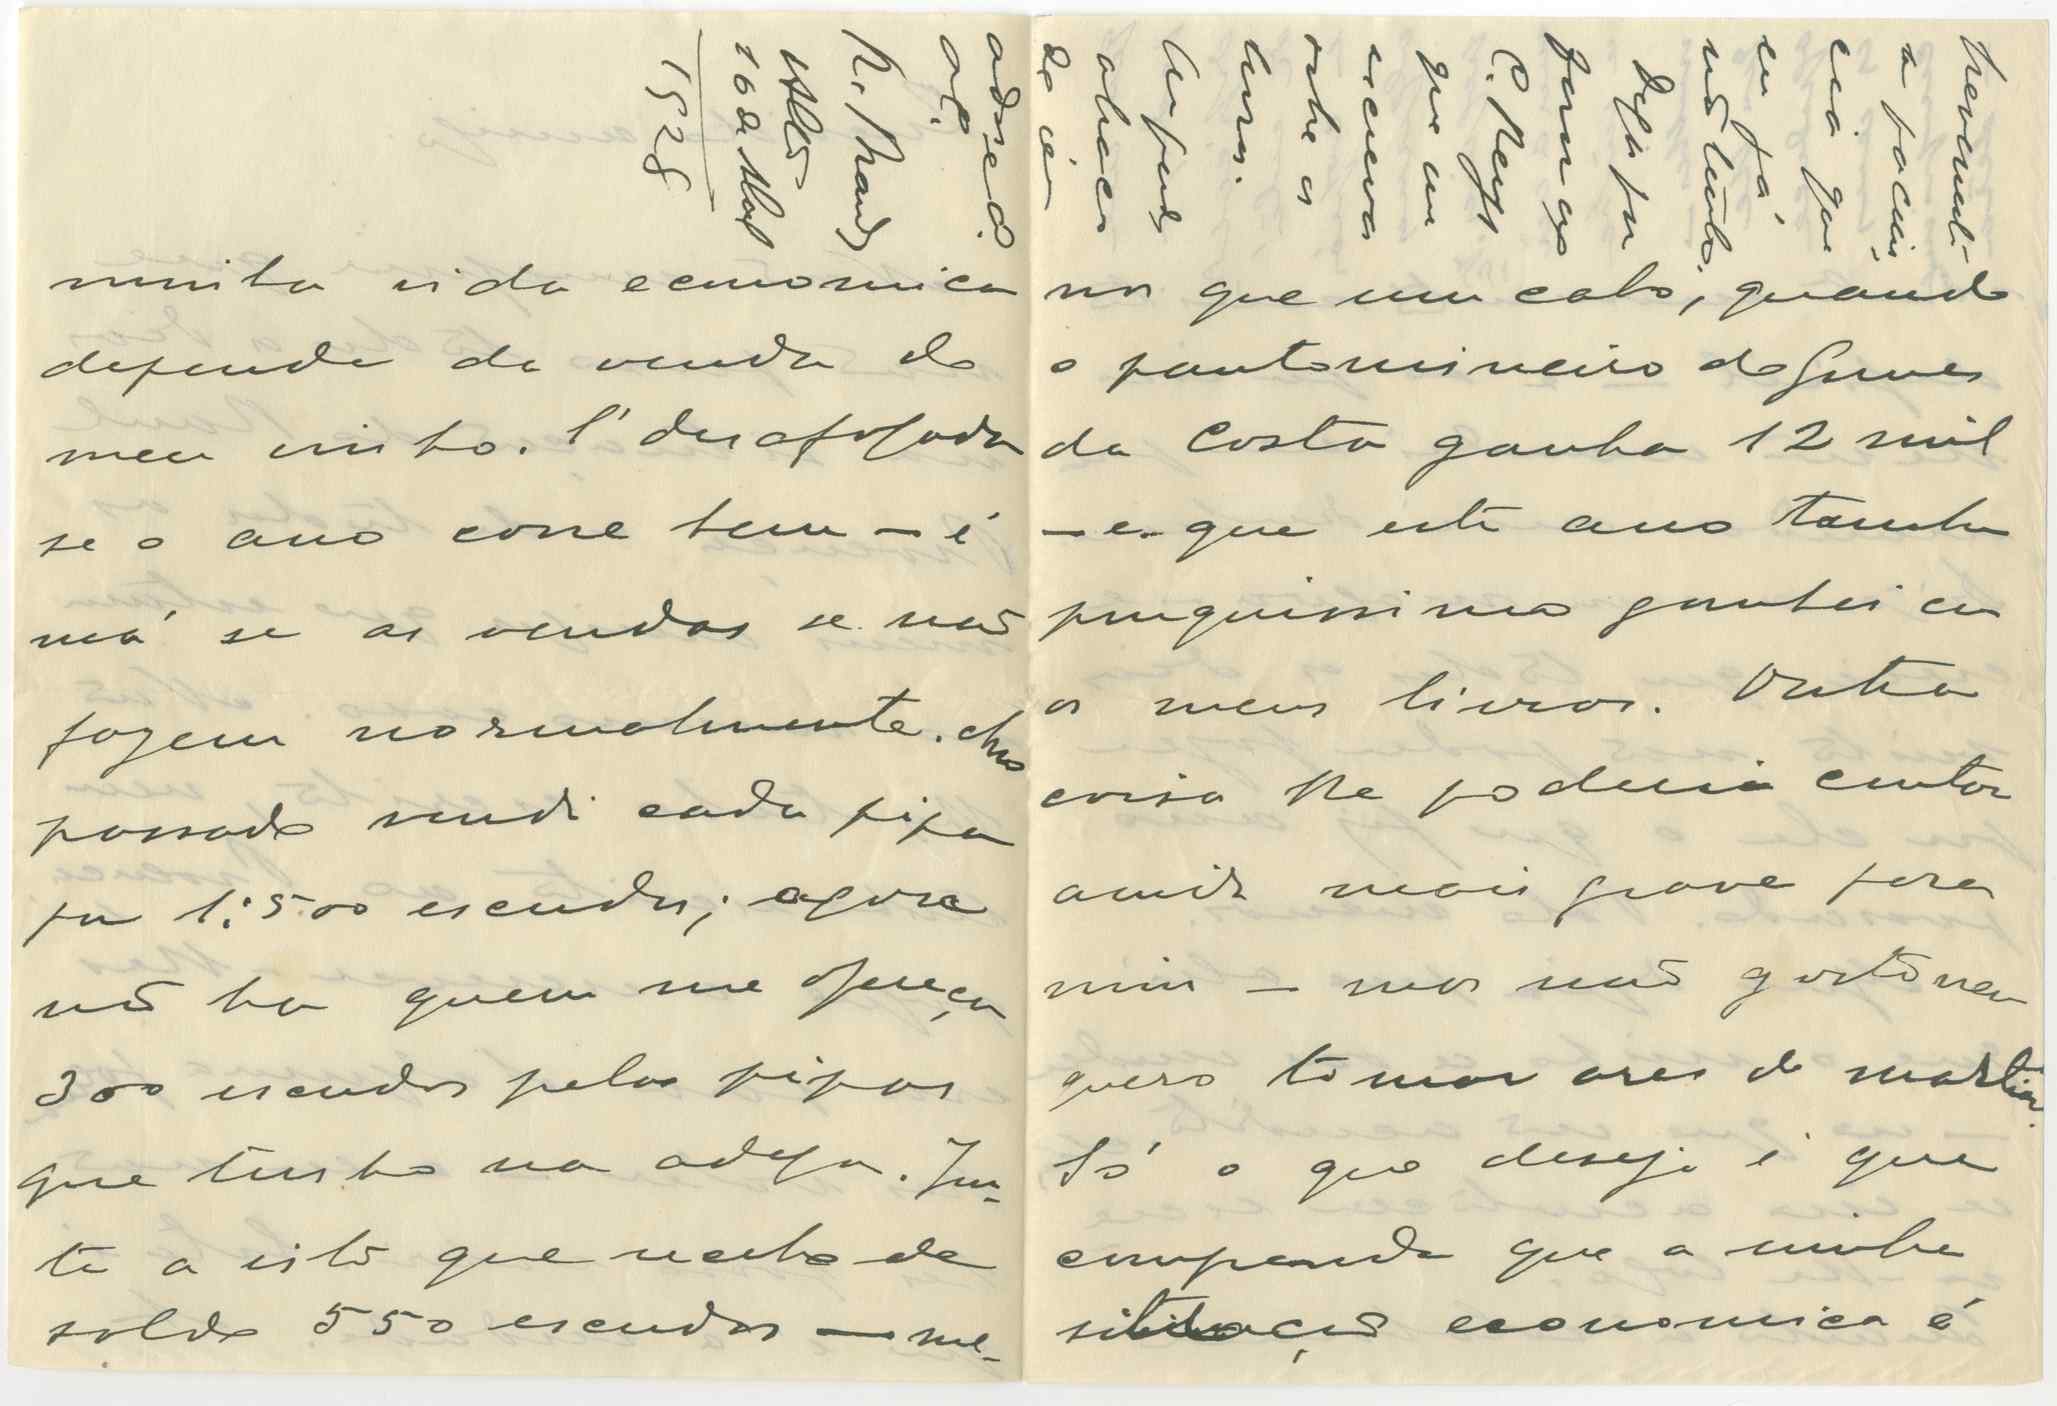 minha vida economica
depende da venda do
meu vinho. É desafogada
se o ano corre bem — é
má se as vendas se não
fazem normalmente. Ano
passado vendi cada pipa
por 1:500 escudos; agora
não ha quem me ofereça
300 escudos pelas pipas
que tenho na adega. Jun-
te a isto que recebo de
soldo 550 escudos — me-
nos que um cabo, quando
o pantomineiro do Gomes
da Costa ganha 12 mil
— e que este ano tambem
pouquissimo ganhei com
os meus livros. Outra
coisa lhe poderia contar
ainda mais grave para
mim — mas não gosto nem
quero tomar ares de martir.
Só o que desejo é que
compreenda que a minha
situação economica é
a paciencia
que
eu já
não tenho.
C. Reys
que um
escreva
sobre os
livros.
Um grande
abraço
do seu
ad.or e
R. Brandão
Alto
16 de Março
1928